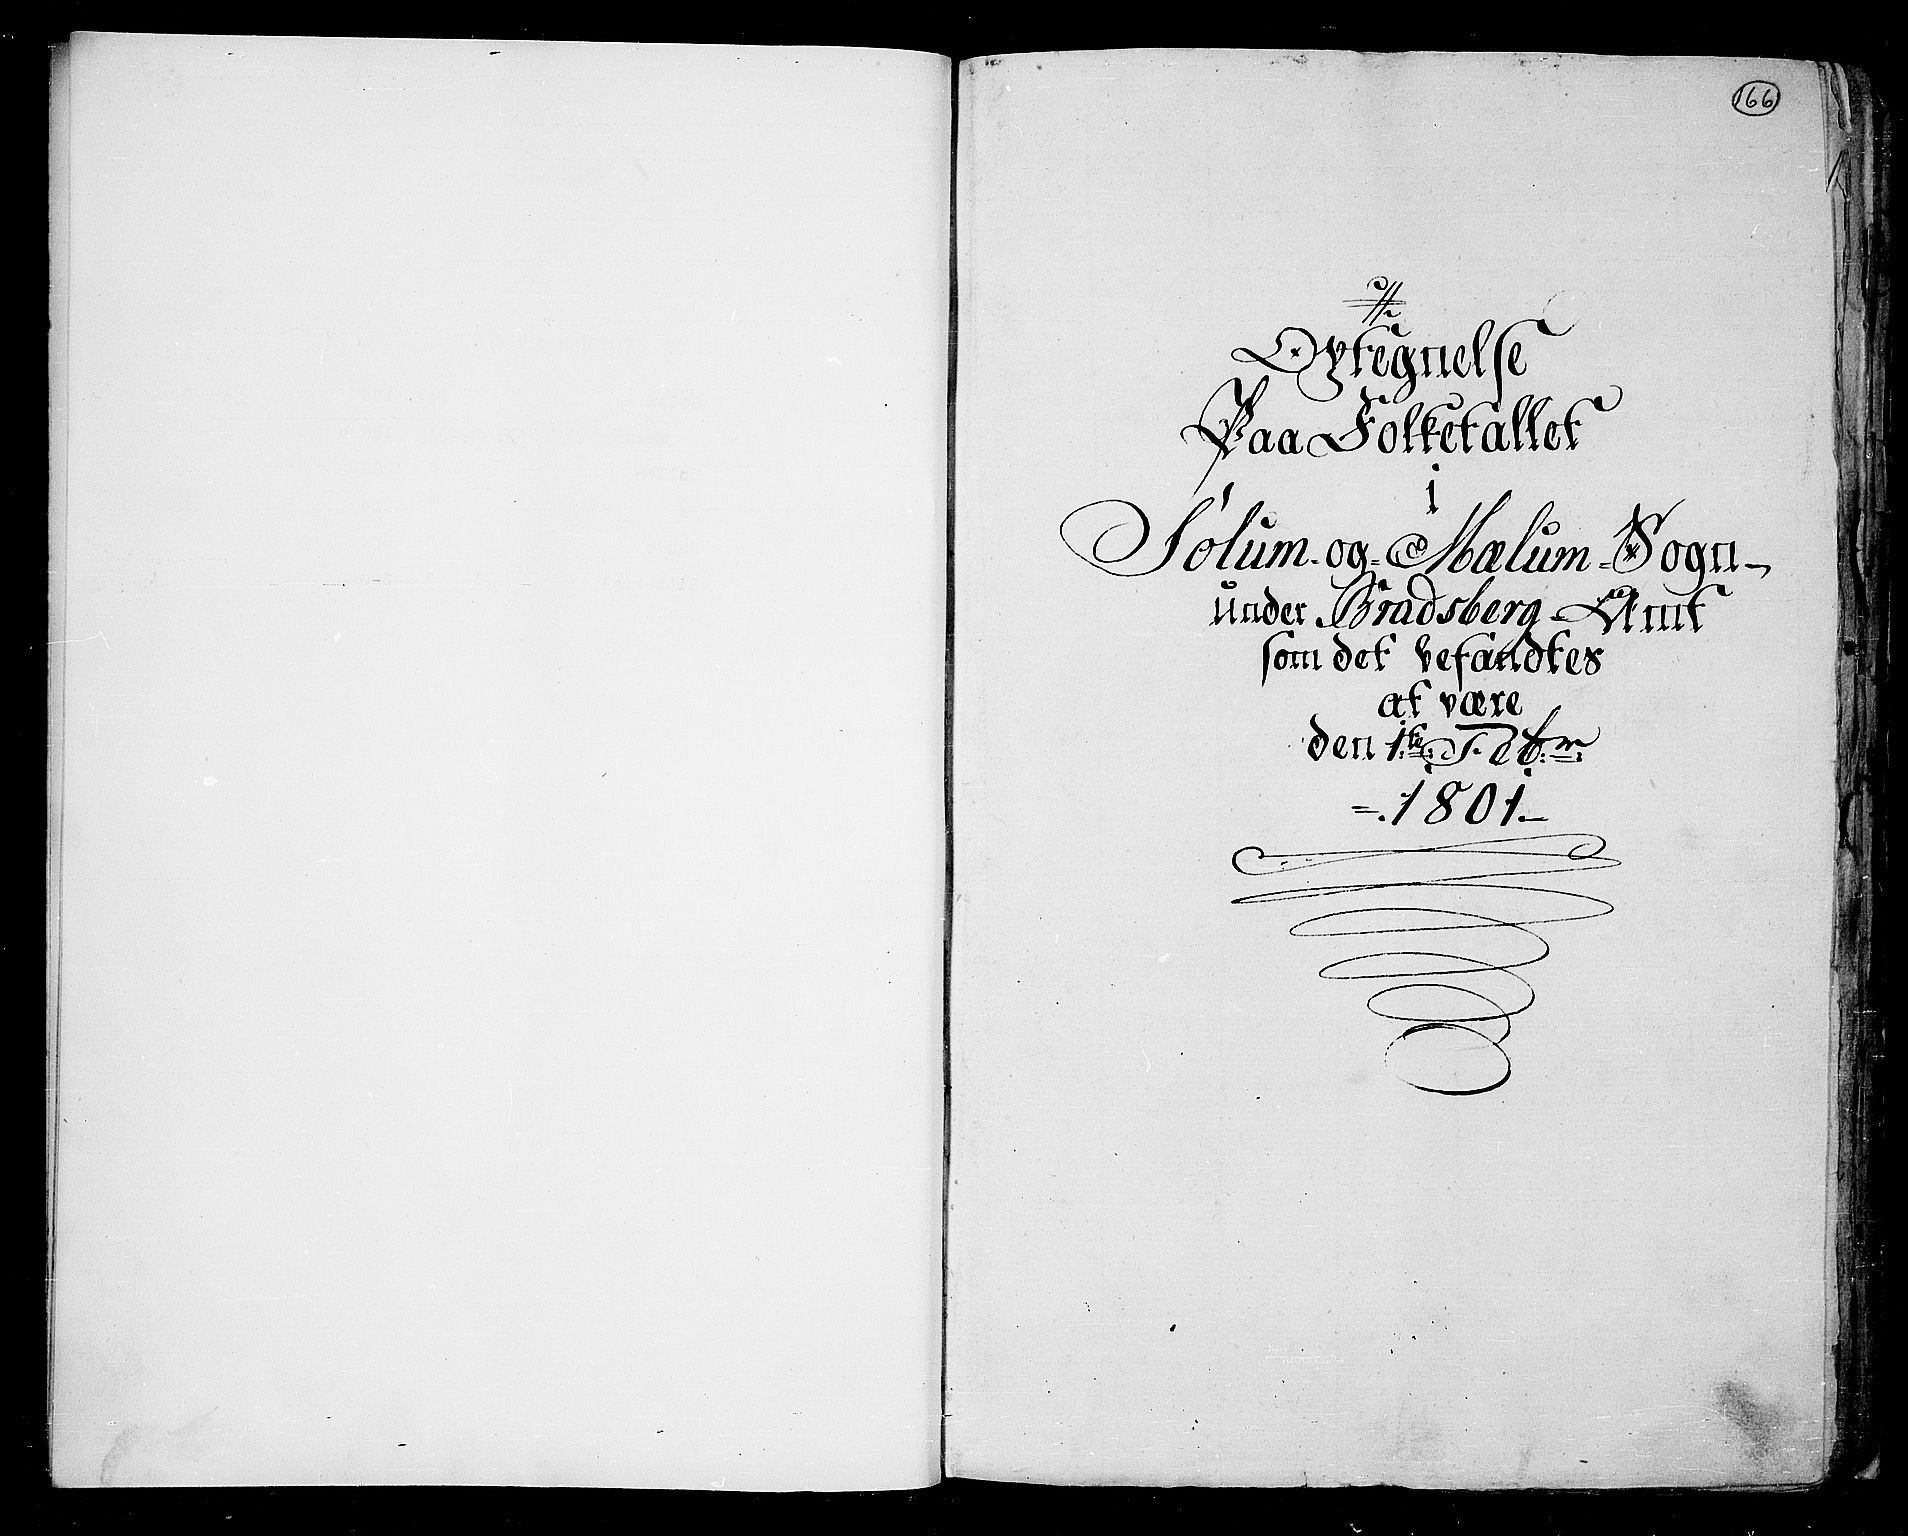 166
Optegnelse
Paa Folketallet
i
Sølum og Mælum Sogn
under Bradsberg Amt
som det befandtes
at være
den 1te Febr
1801